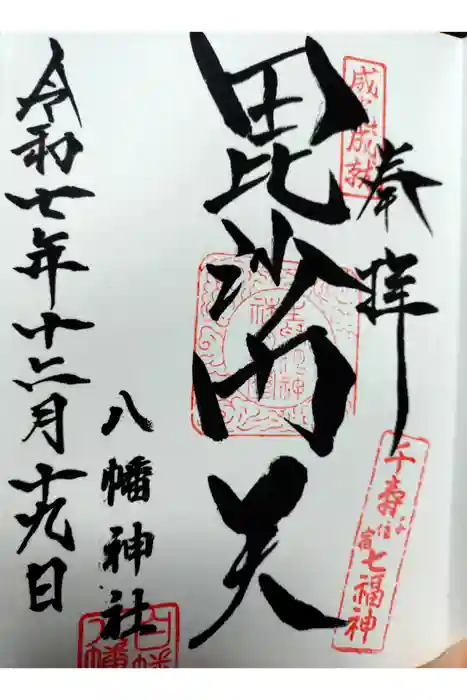 奉拝
千寿七福神
毘沙門天
八幡神社
令和七年十二月十九日